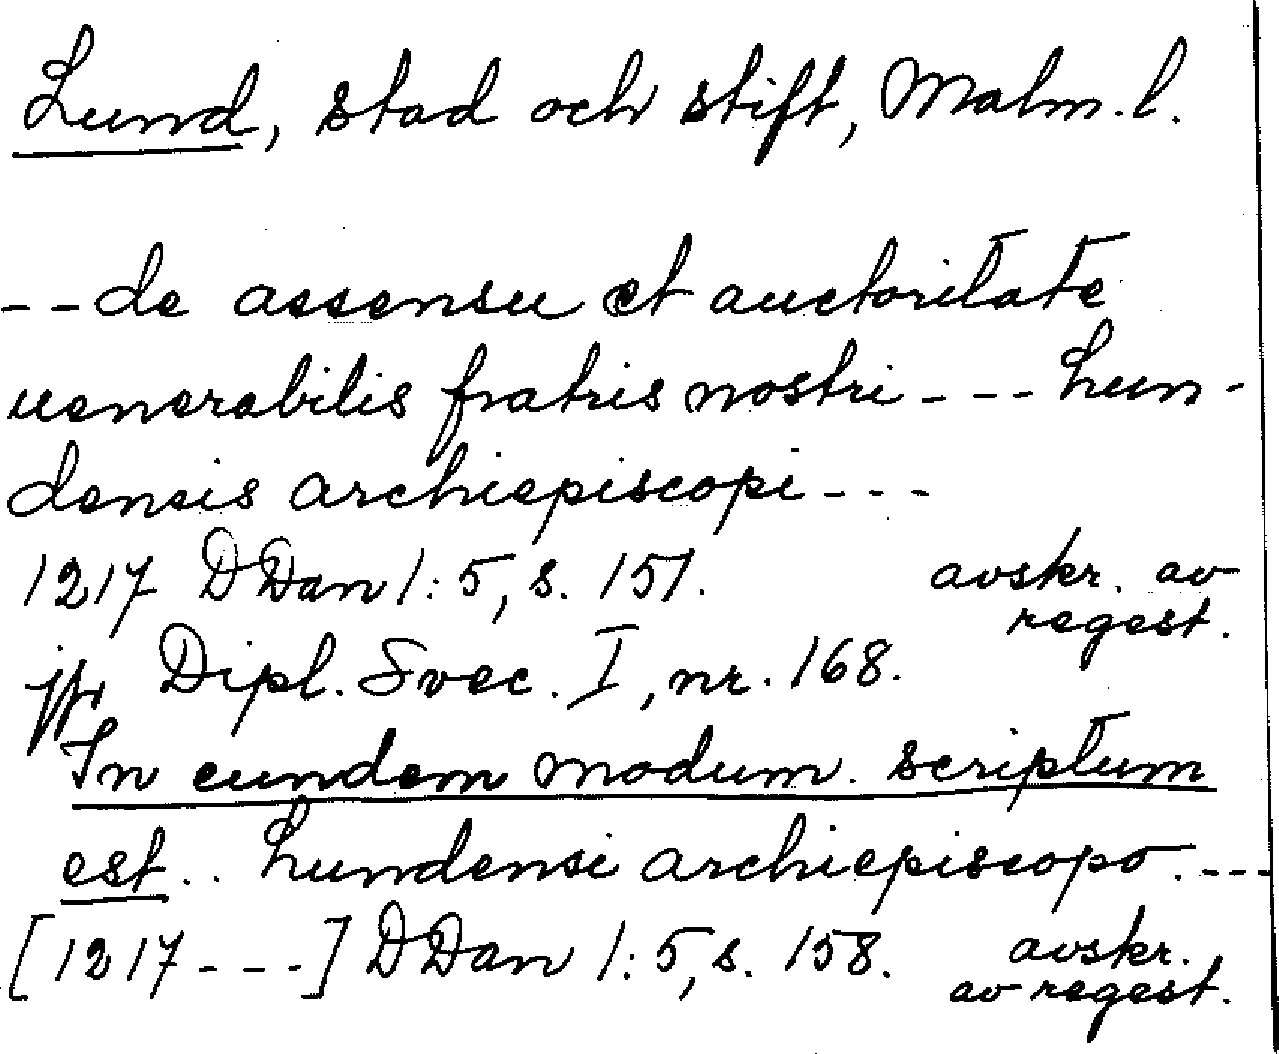 Lund, stad och stift, Malm.l.
--de assensu et auctoritate
uenerabilis fratris nostri---- Lun-
densis archiepiscopi---
1217 DDan 1:5, s. 151. avskr. av
regest.
jfr Dipl. Svec. I, nr. 168.
In eundem modum. scriptum
est.. Lundensi archiepiscopo.---
[1217---] DDan 1:5, s. 158. avskr.
av regest.